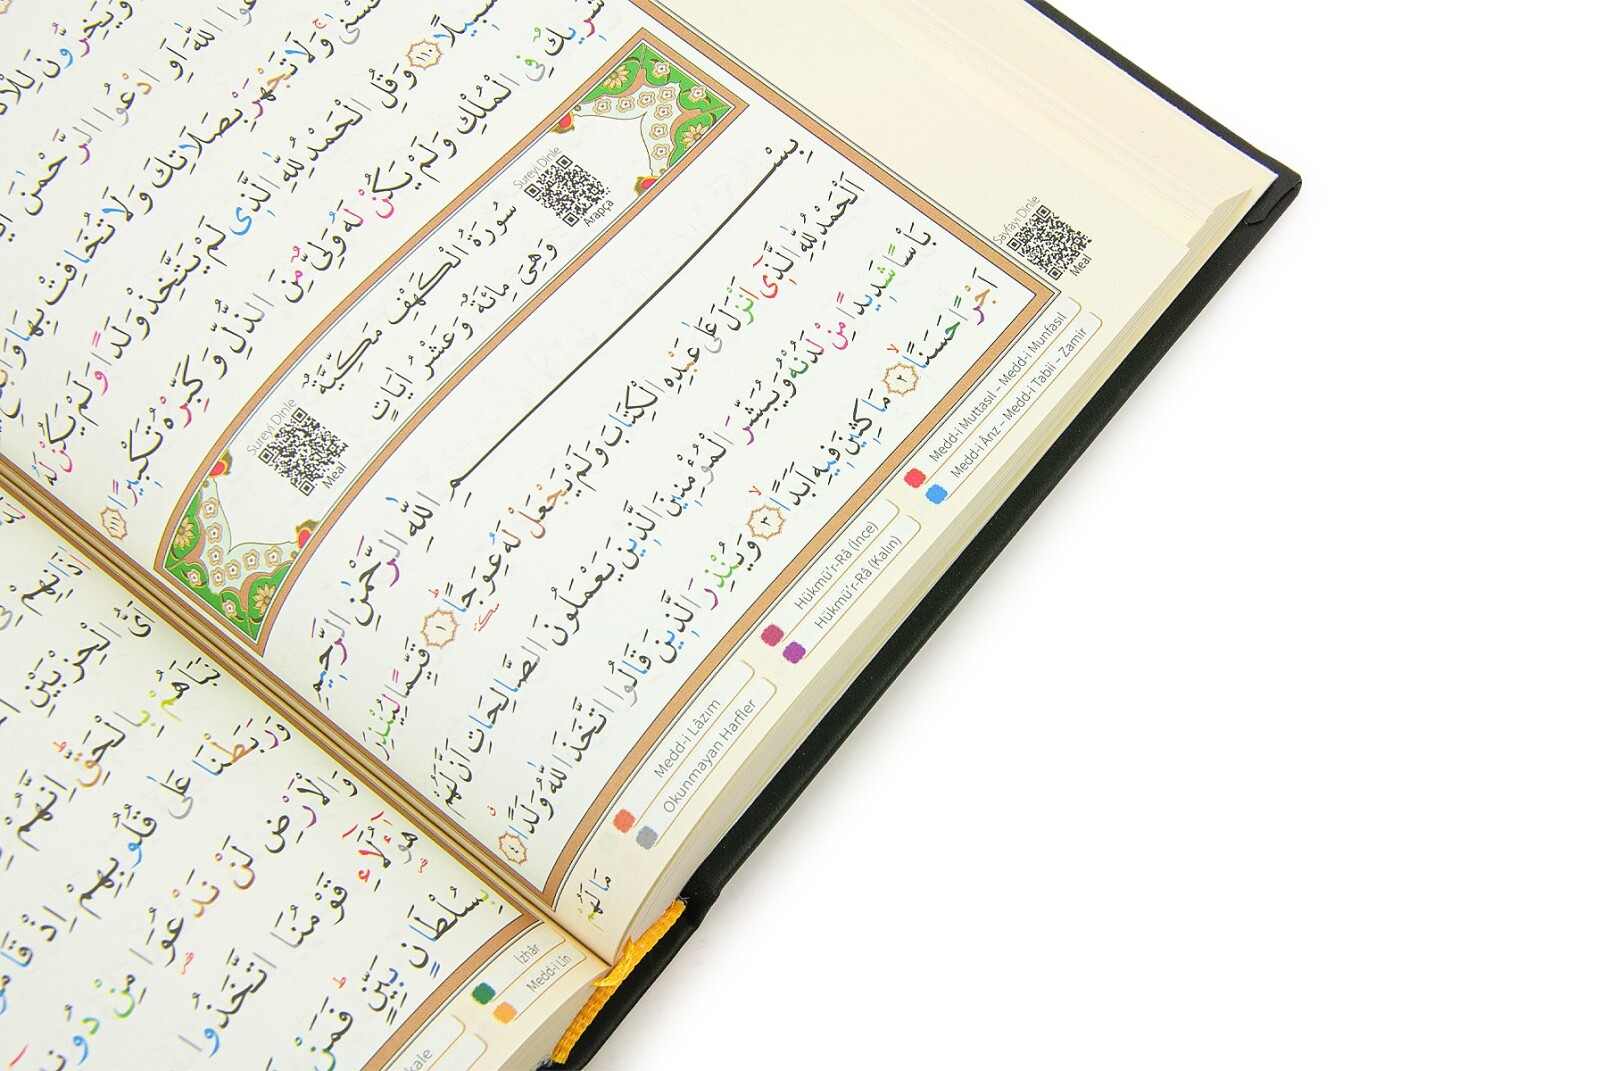 وَيَخِرُّونَ لِلْاَذْ
عُوا اللّٰهَ اَوِ ادْعُوا الرَّحْمٰنَ
حُسْنٰى وَلَا تَجْهَرْ بِصَلَاتِكَ وَلَا تُخَافِتْ بِهَا وَابْتَغِ
سَبٖيلًا ﴿١١٠﴾ وَقُلِ الْحَمْدُ لِلّٰهِ الَّذٖى لَمْ يَتَّخِذْ وَلَدًا وَلَمْ يَكُنْ لَهُ
شَرٖيكٌ فِى الْمُلْكِ وَلَمْ يَكُنْ لَهُ وَلِىٌّ مِنَ الذُّلِّ وَكَبِّرْهُ تَكْبٖيرًا ﴿١١١﴾
Sureyi Dinle
Arapça
سُورَةُ الْكَهْفِ مَكِّيَّةٌ
وَهِىَ مِائَةٌ وَعَشْرُ اٰيَاتٍ
Sureyi Dinle
Meal
بِسْمِ اللّٰهِ الرَّحْمٰنِ الرَّحٖيمِ
اَلْحَمْدُ لِلّٰهِ الَّذٖٓى اَنْزَلَ عَلٰى عَبْدِهِ الْكِتَابَ وَلَمْ يَجْعَلْ لَهُ عِوَجًا ﴿١﴾ قَيِّمًا لِيُنْذِرَ
بَاْسًا شَدٖيدًا مِنْ لَدُنْهُ وَيُبَشِّرَ الْمُؤْمِنٖينَ الَّذٖينَ يَعْمَلُونَ الصَّالِحَاتِ اَنَّ لَهُمْ
اَجْرًا حَسَنًا ﴿٢﴾ مَاكِثٖينَ فٖيهِ اَبَدًا ﴿٣﴾ وَيُنْذِرَ الَّذٖينَ قَالُوا اتَّخَذَ اللّٰهُ وَلَدًا ﴿٤﴾
مَا لَهُمْ
Sayfayı Dinle
Meal
Medd-i Muttasıl – Medd-i Munfasıl
Medd-i Ânz – Medd-i Tabii – Zamir
Hükmü'r-Râ (İnce)
Hükmü'r-Râ (Kalın)
Medd-i Lâzım
Okunmayan Harfler
اَىُّ الْحِزْبَيْنِ
نَبَاَهُمْ بِالْحَقِّ اِنَّهُمْ
وَرَبَطْنَا عَلٰى قُلُوبِهِمْ اِذْ قَامُوا
وَالْاَرْضِ لَنْ نَدْعُوَا مِنْ دُونِهٖ
هٰٓؤُلَٓاءِ قَوْمُنَا اتَّخَذُوا
بِسُلْطَانٍ بَيِّنٍ فَمَنْ
Izhâr
Medd-i Lîn
kale